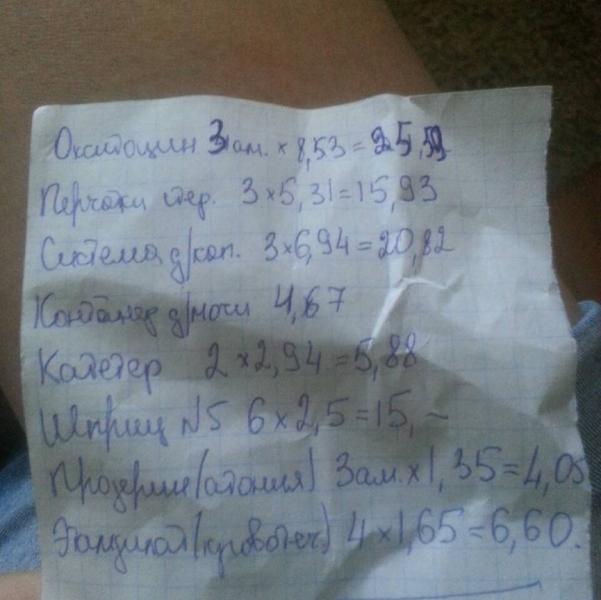 Окситоцин 3 ам. × 8,53 = 25,59
Перчатки стер. 3 × 5,31 = 15,93
Система д/кап. 3 × 6,94 = 20,82
Контейнер д/мочи 4,67
Катетер 2 × 2,94 = 5,88
Шприц №5 6 × 2,5 = 15, –
Прозерин (атония) 3 ам. × 1,35 = 4,05
Этамзилат (кровотеч) 4 × 1,65 = 6,60.